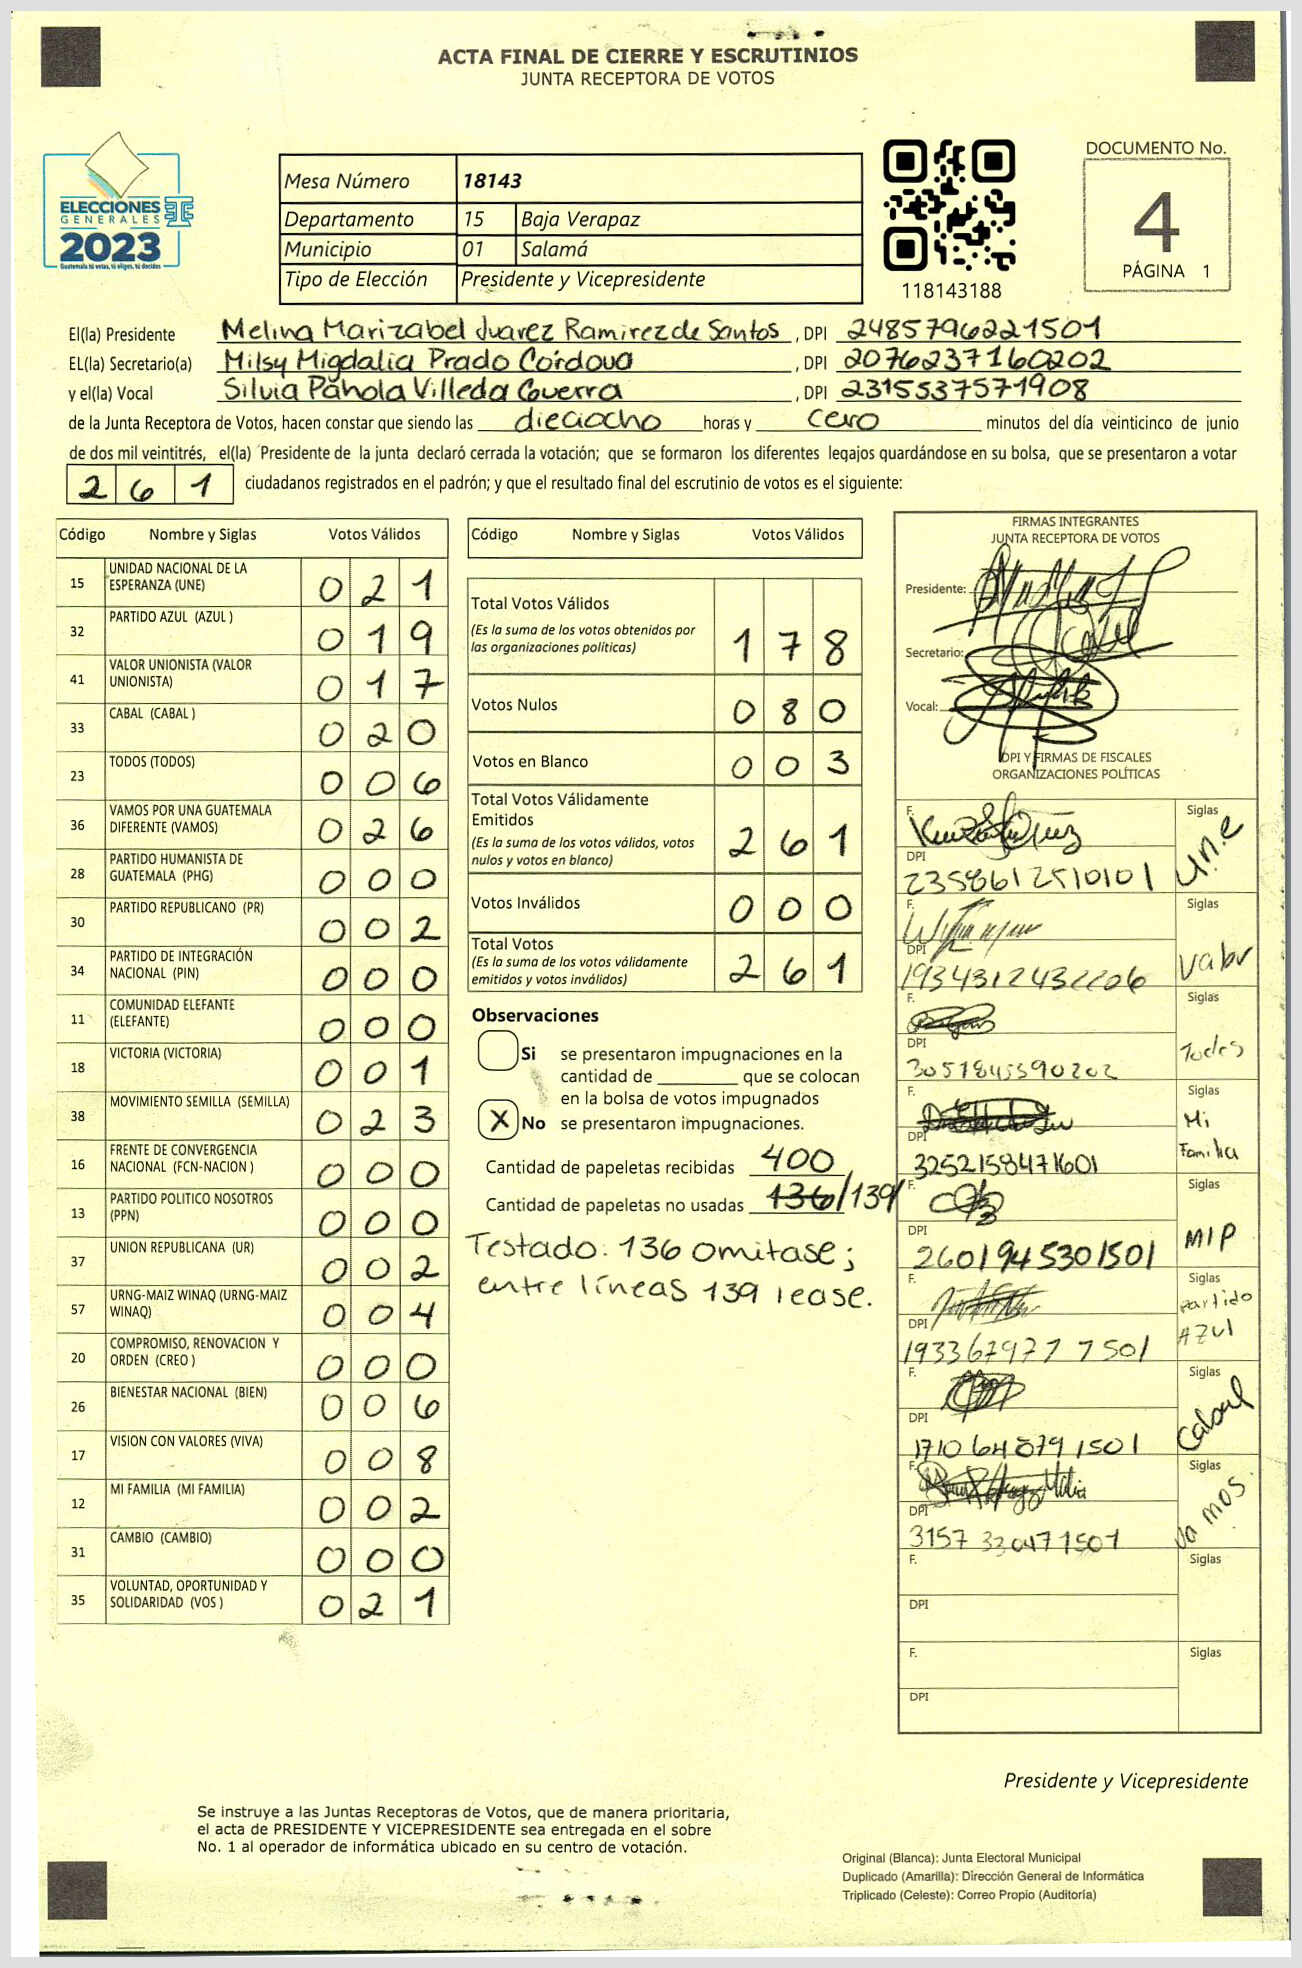 ACTA FINAL DE CIERRE Y ESCRUTINIOS
JUNTA RECEPTORA DE VOTOS
ELECCIONES
GENERALES
2023
Guatemala tú votas, tú eliges, tú decides
Mesa Número 18143
Departamento 15 Baja Verapaz
Municipio 01 Salamá
Tipo de Elección Presidente y Vicepresidente
118143188
DOCUMENTO No.
4
PÁGINA 1
El(la) Presidente Melina Marizabel Juarez Ramirez de Santos, DPI 2485796221501
EL(la) Secretario(a) Milsy Migdalia Prado Córdova, DPI 2076237160202
y el(la) Vocal Silvia Pahola Villeda Guerra, DPI 2315537571908
de la Junta Receptora de Votos, hacen constar que siendo las dieciocho horas y cero minutos del día veinticinco de junio
de dos mil veintitrés, el(la) Presidente de la junta declaró cerrada la votación; que se formaron los diferentes legajos guardándose en su bolsa, que se presentaron a votar
261 ciudadanos registrados en el padrón; y que el resultado final del escrutinio de votos es el siguiente:
Código Nombre y Siglas Votos Válidos
15 UNIDAD NACIONAL DE LA ESPERANZA (UNE) 021
32 PARTIDO AZUL (AZUL ) 019
41 VALOR UNIONISTA (VALOR UNIONISTA) 017
33 CABAL (CABAL ) 020
23 TODOS (TODOS) 006
36 VAMOS POR UNA GUATEMALA DIFERENTE (VAMOS) 026
28 PARTIDO HUMANISTA DE GUATEMALA (PHG) 000
30 PARTIDO REPUBLICANO (PR) 002
34 PARTIDO DE INTEGRACIÓN NACIONAL (PIN) 000
11 COMUNIDAD ELEFANTE (ELEFANTE) 000
18 VICTORIA (VICTORIA) 001
38 MOVIMIENTO SEMILLA (SEMILLA) 023
16 FRENTE DE CONVERGENCIA NACIONAL (FCN-NACION ) 000
13 PARTIDO POLITICO NOSOTROS (PPN) 000
37 UNION REPUBLICANA (UR) 002
57 URNG-MAIZ WINAQ (URNG-MAIZ WINAQ) 004
20 COMPROMISO, RENOVACION Y ORDEN (CREO ) 000
26 BIENESTAR NACIONAL (BIEN) 006
17 VISION CON VALORES (VIVA) 008
12 MI FAMILIA (MI FAMILIA) 002
31 CAMBIO (CAMBIO) 000
35 VOLUNTAD, OPORTUNIDAD Y SOLIDARIDAD (VOS ) 021
Código Nombre y Siglas Votos Válidos
Total Votos Válidos 178
(Es la suma de los votos obtenidos por
las organizaciones políticas)
Votos Nulos 080
Votos en Blanco 003
Total Votos Válidamente
Emitidos 261
(Es la suma de los votos válidos, votos
nulos y votos en blanco)
Votos Inválidos 000
Total Votos 261
(Es la suma de los votos válidamente
emitidos y votos inválidos)
Observaciones
Si se presentaron impugnaciones en la
cantidad de ________ que se colocan
en la bolsa de votos impugnados
X No se presentaron impugnaciones.
Cantidad de papeletas recibidas 400
Cantidad de papeletas no usadas 136/139/
Testado: 136 omitase;
entre líneas 139 lease.
FIRMAS INTEGRANTES
JUNTA RECEPTORA DE VOTOS
Presidente:
Secretario:
Vocal:
DPI Y FIRMAS DE FISCALES
ORGANIZACIONES POLÍTICAS
F. Siglas
U.n.e
DPI
2358612510101
F. Siglas
Valor
DPI
F. Siglas
Todos
DPI
F. Siglas
Mi
Familia
DPI
3252158471601
F. Siglas
MIP
DPI
2601945301501
F. Siglas
partido
AZUL
DPI
1933679777501
F. Siglas
Cabal
DPI
1710648791501
F. Siglas
Vamos
DPI
3157330471501
F. Siglas
DPI
F. Siglas
DPI
Presidente y Vicepresidente
Se instruye a las Juntas Receptoras de Votos, que de manera prioritaria,
el acta de PRESIDENTE Y VICEPRESIDENTE sea entregada en el sobre
No. 1 al operador de informática ubicado en su centro de votación.
Original (Blanca): Junta Electoral Municipal
Duplicado (Amarilla): Dirección General de Informática
Triplicado (Celeste): Correo Propio (Auditoría)